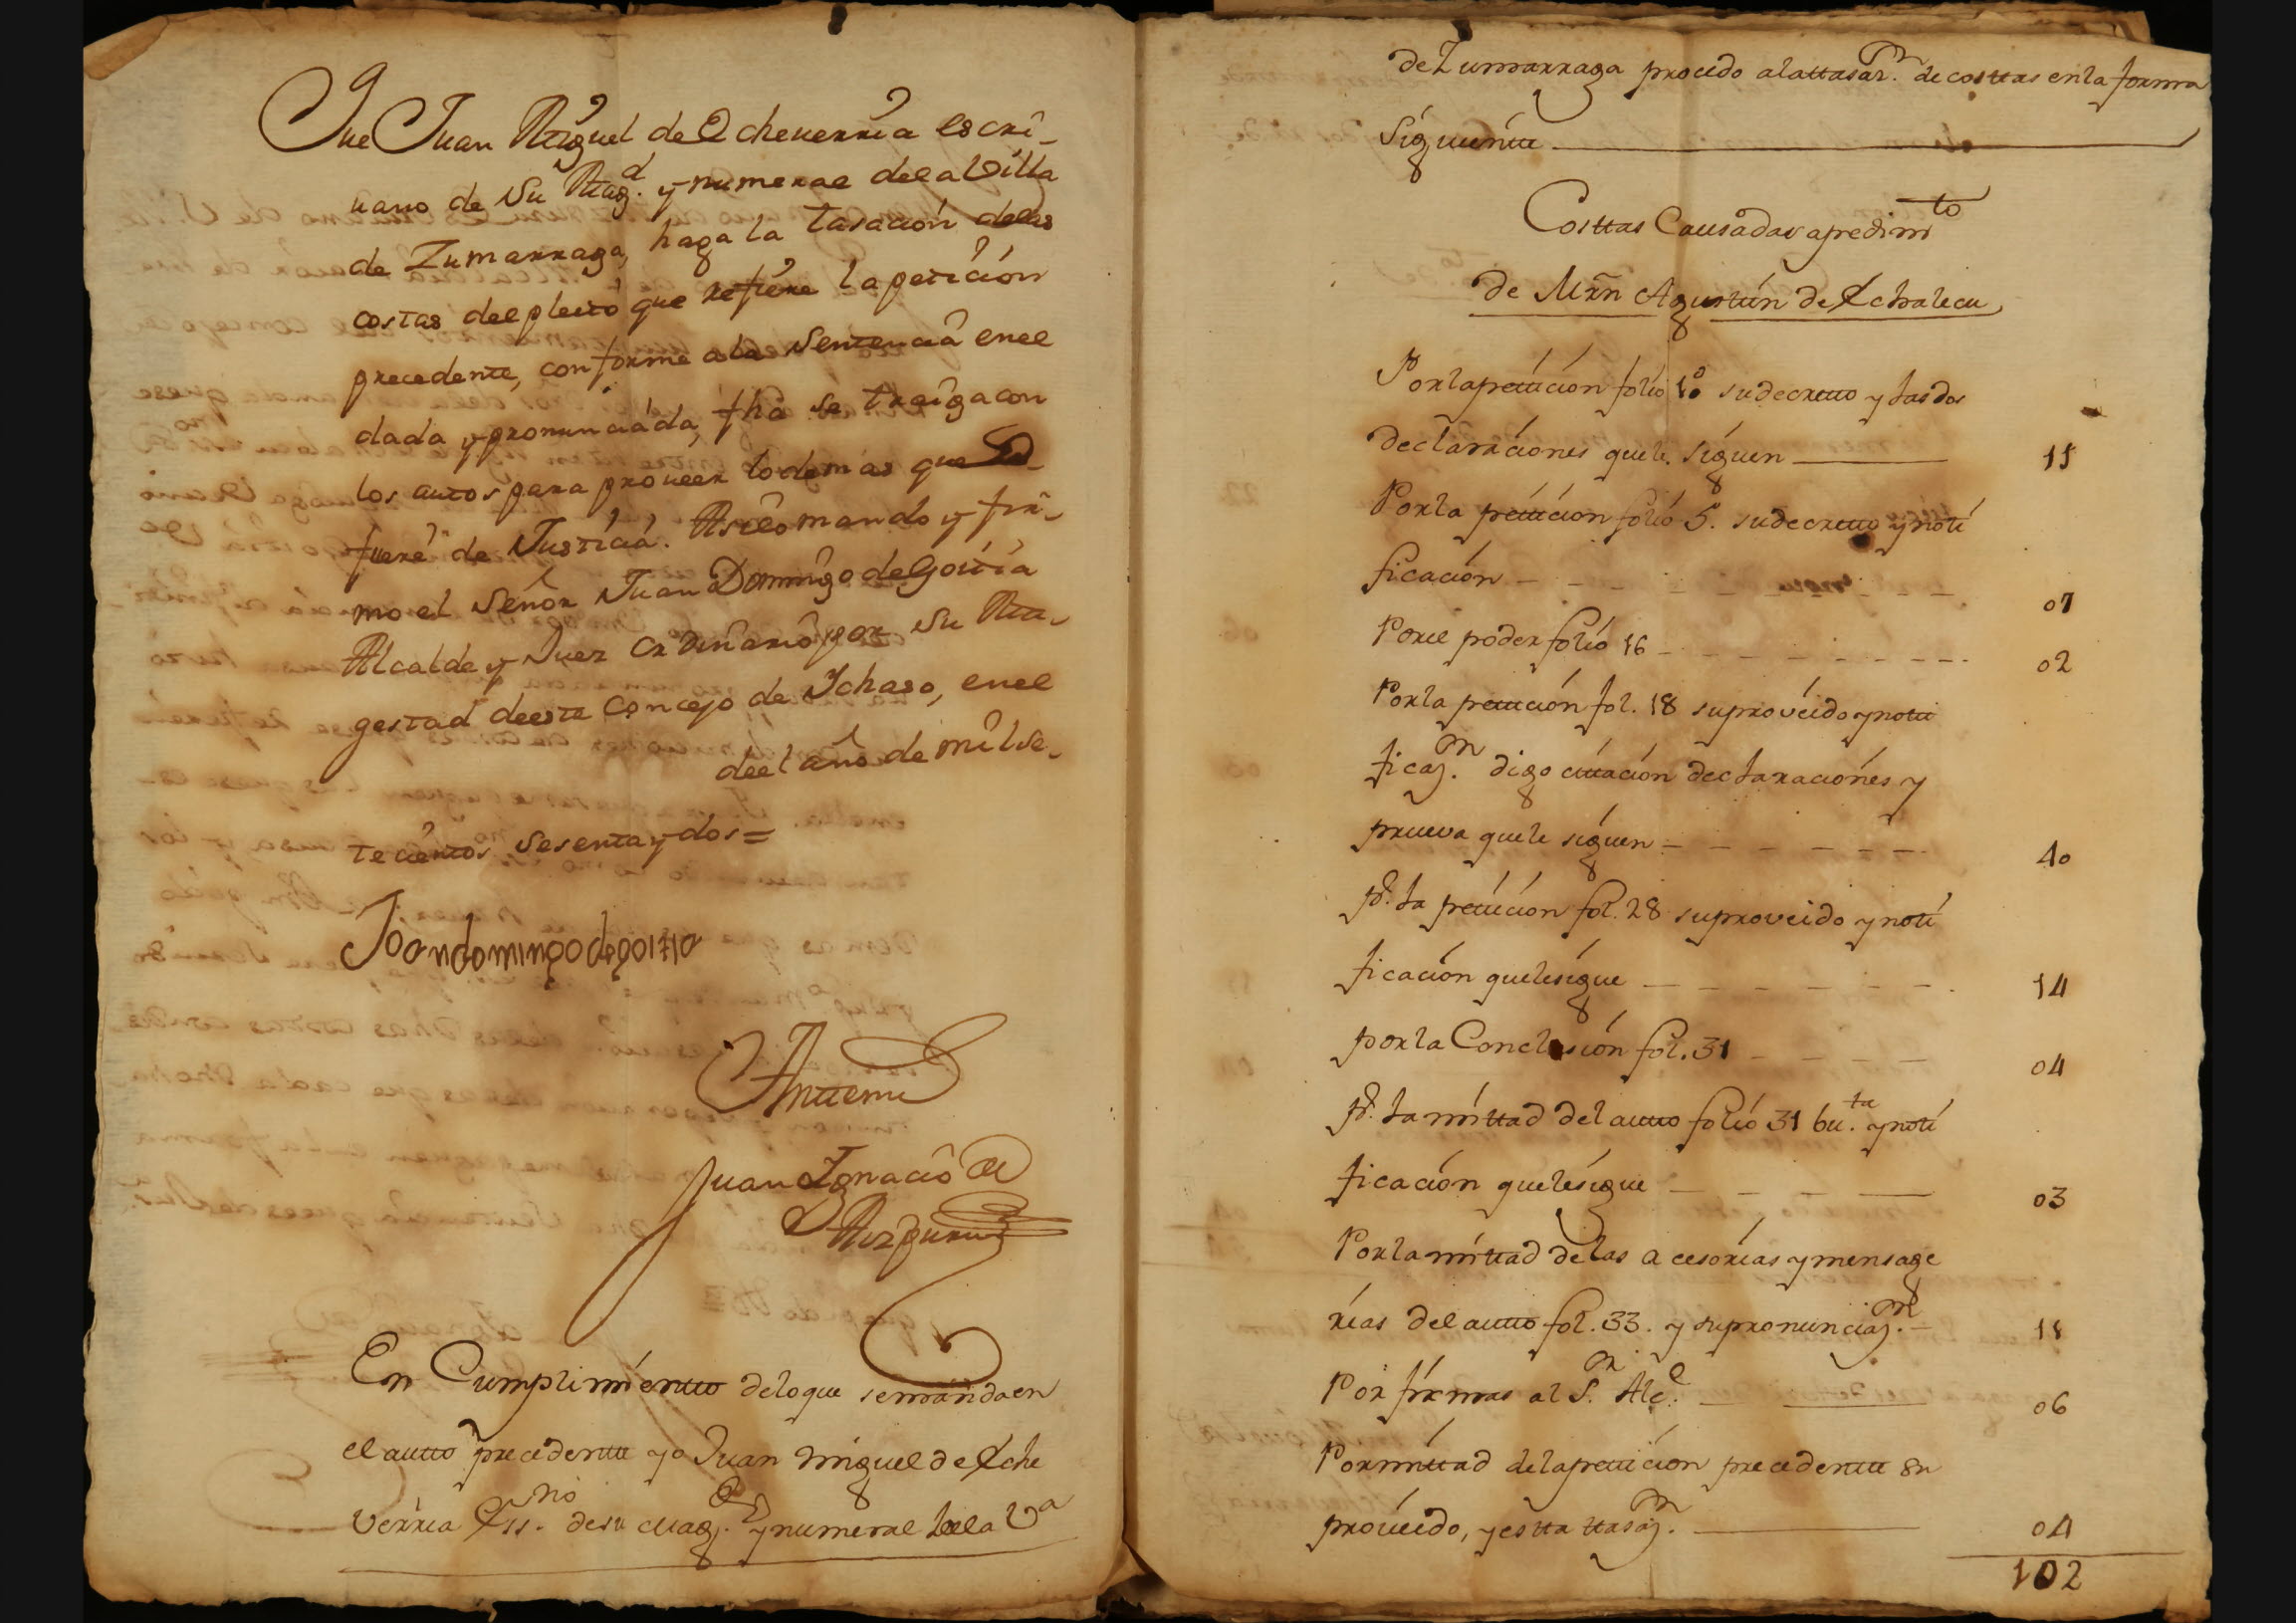 Que Juan Miguel de Echeverria escri-
uano de Su Mag.d y numeral de la Villa
de Zumarraga, haga la tasación de las
costas del pleito que refiere la petición
precedente, conforme a la Sentencia en el
dada y pronunciada, fha se traiga con
los autos para proveer lo demas que
fuere de Justicia. Asi lo mando y fir-
mo el Señor Juan Domingo de Goitia
Alcalde y Juez ordinario por su Ma-
gestad de este Concejo de Ichaso, en el
de el año de mil se-
tecientos sesenta y dos =
Joan domingo de goitia
Antemi
Juan Ignacio de
Aizpuru
En Cumplimientto de lo que se manda en
el autto precedentte yo Juan Miguel de Eche
verria Ess.no de su Mag.d y numeral de la V.a
de Zumarraga procedo a la ttasaz.n de costtas en la forma
siguientte
Costtas Causadas a pedim.to
de Mrñ Agusttin de Echalecu
Por la petticion folio 1º su decretto y las dos
declaraciones que le siguen 15
Por la petticion folio 5. su decretto y noti
ficación 07
Por el poder folio 16 02
Por la petticion fol. 18 su proveido y notti
ficaz.n digo cittación declaraciones y
prueva que le siguen 40
pr. la petticion fol. 28 su proveido y noti
ficación que le sigue 14
por la Conclusión fol. 31 04
pr. la mittad del autto folio 31 bu.ta y noti
ficación que le sigue 03
Por la mittad de las acesorias y mensage
rias del autto fol. 33. y su pronunciaz.n
Por firmas al S.r Alc.e 06
Por mittad de la petticion precedentte su
proveido, y estta ttasaz.n 04
102